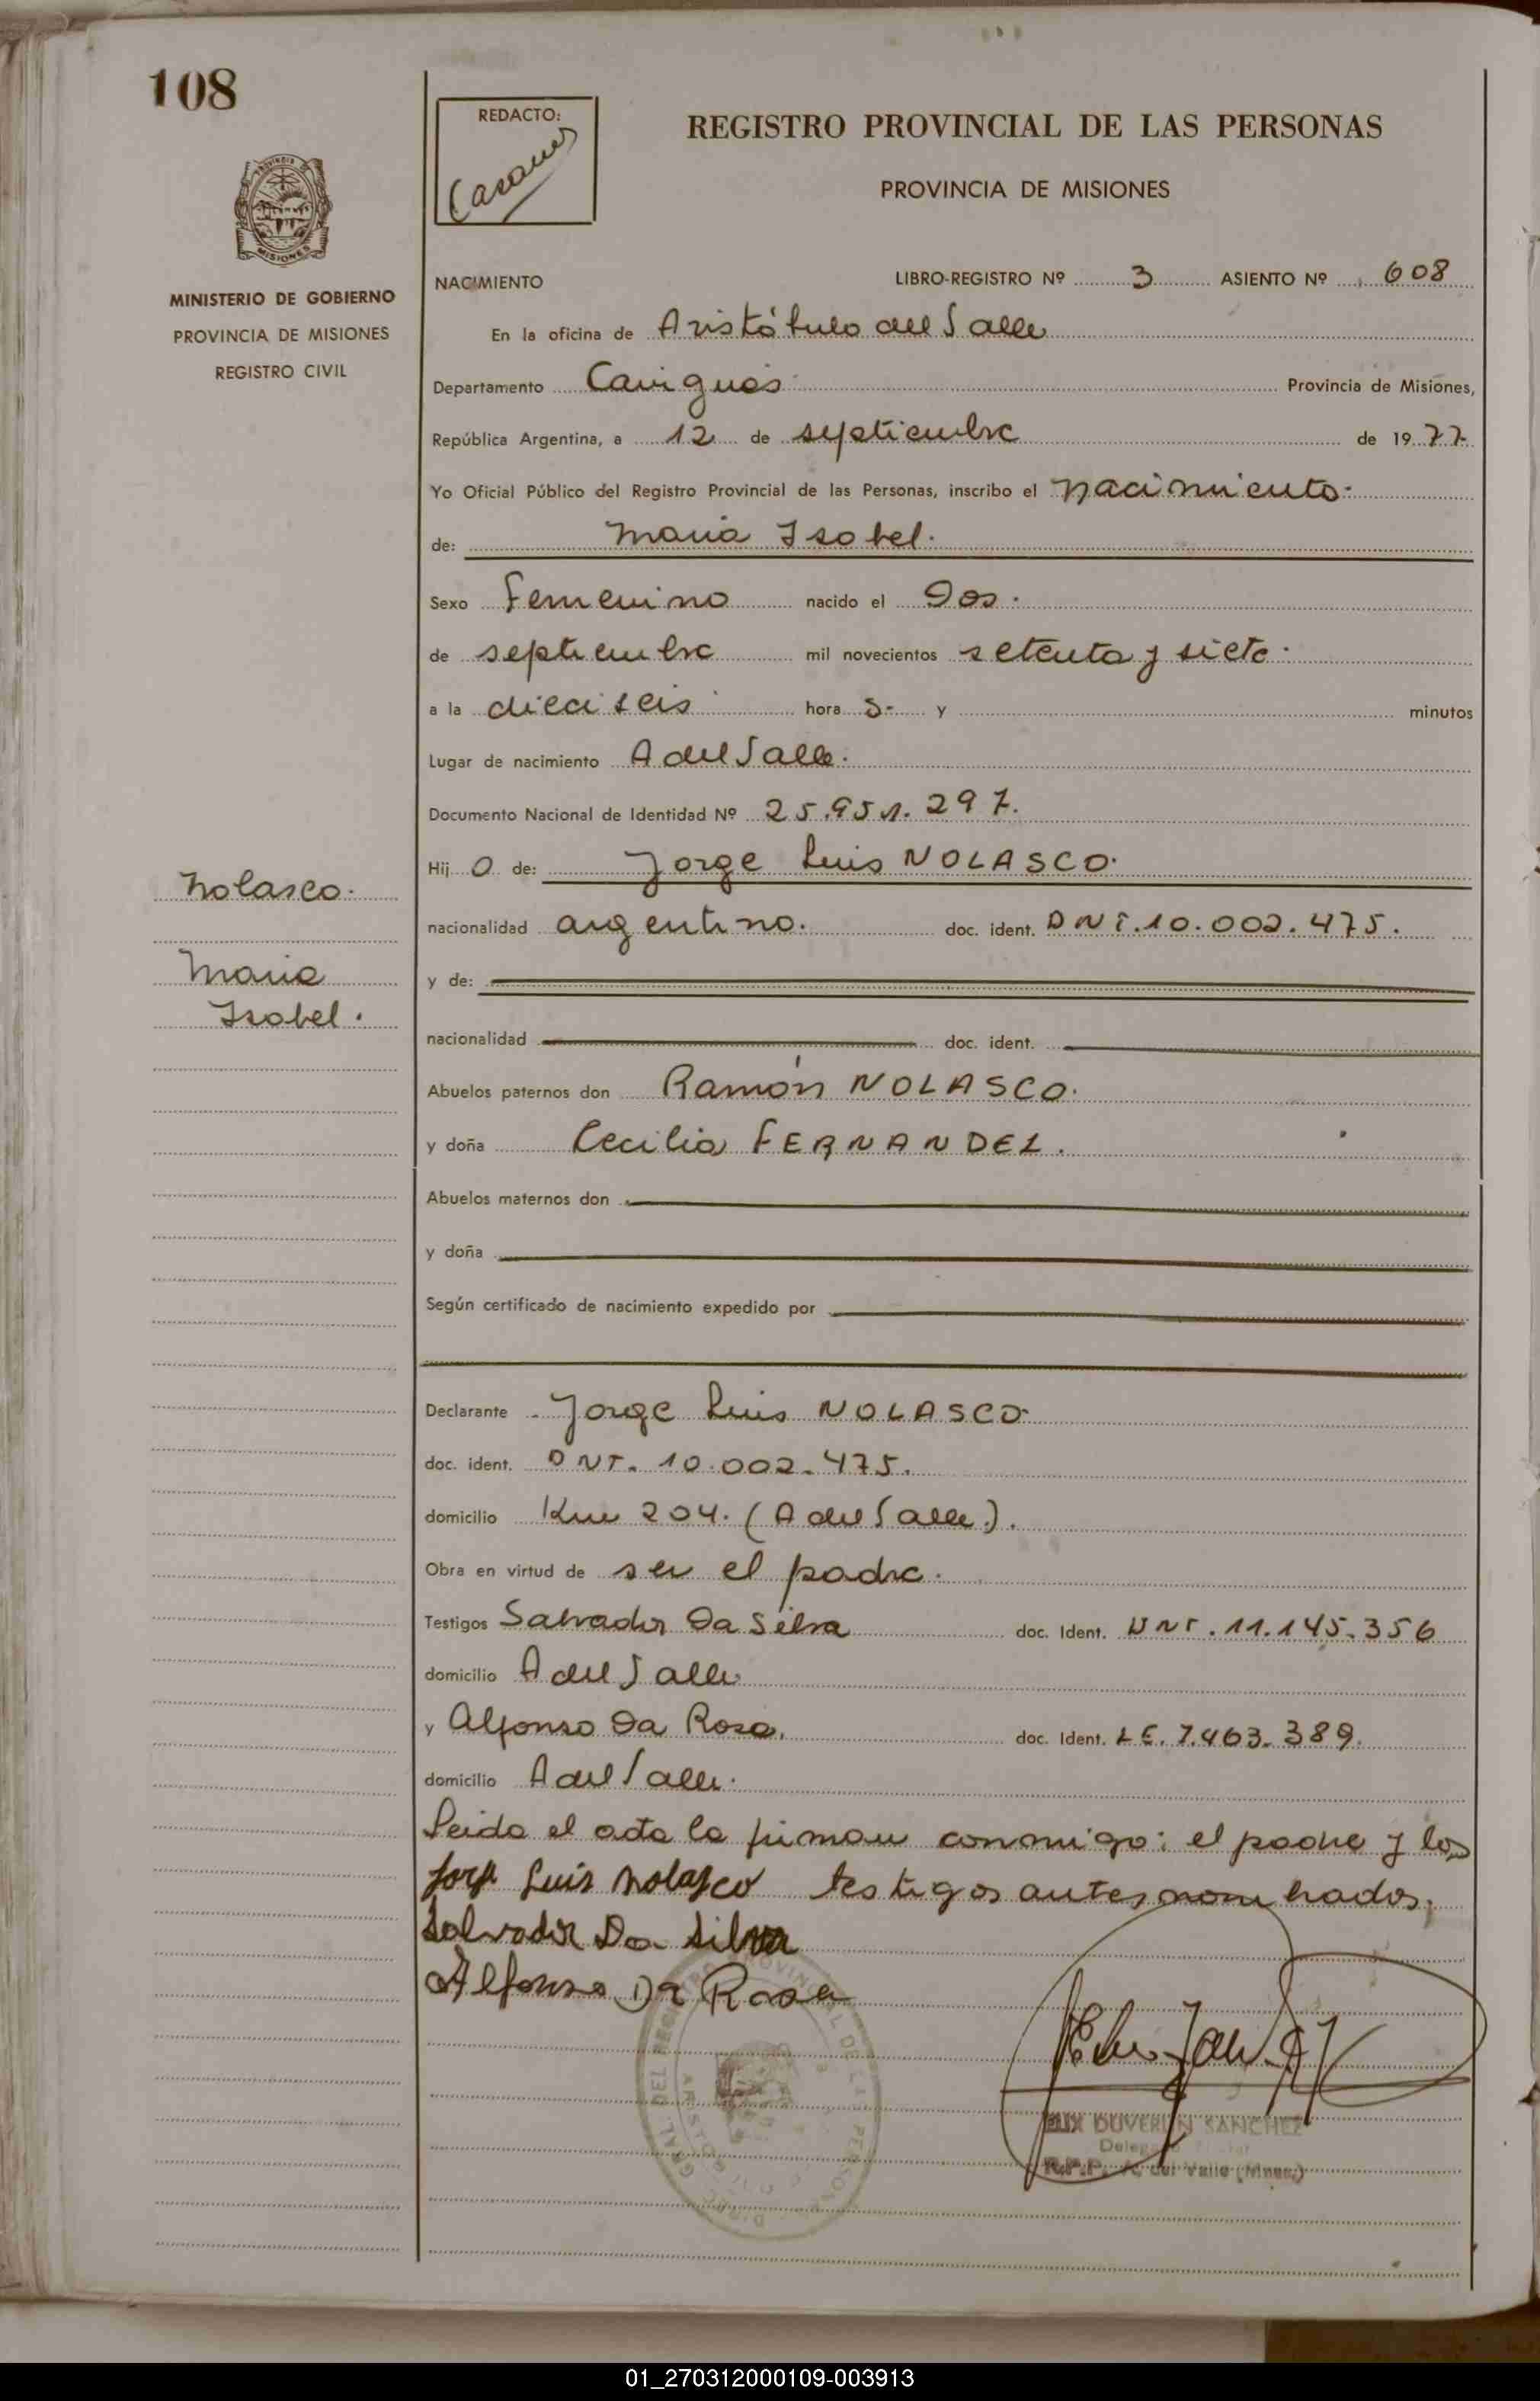 108
REDACTO:
REGISTRO PROVINCIAL DE LAS PERSONAS
PROVINCIA DE MISIONES
MISIONES
MINISTERIO DE GOBIERNO
PROVINCIA DE MISIONES
REGISTRO CIVIL
NACIMIENTO LIBRO-REGISTRO Nº 3 ASIENTO Nº 608
En la oficina de Aristóbulo del Valle
Departamento Cainguas Provincia de Misiones,
República Argentina, a 12 de septiembre de 1977
Yo Oficial Público del Registro Provincial de las Personas, inscribo el nacimiento.
de: Maria Isabel.
Sexo Femenino nacido el Dos.
de septiembre mil novecientos setenta y siete.
a la dieciseis hora s- y minutos
Lugar de nacimiento A del Valle.
Documento Nacional de Identidad Nº 25.951.297.
Hij a de: Jorge Luis NOLASCO.
nacionalidad argentino. doc. ident. DNI.10.002.475.
y de:
nacionalidad doc. ident.
Abuelos paternos don Ramón NOLASCO.
y doña Cecilia FERNANDEZ.
Abuelos maternos don
y doña
Según certificado de nacimiento expedido por
Nolasco.
Maria
Isabel.
Declarante Jorge Luis NOLASCO.
doc. ident. DNI. 10.002.475.
domicilio Km 204. (A del Valle).
Obra en virtud de ser el padre.
Testigos Salvador Da Silva doc. Ident. DNI.11.145.356
domicilio A del Valle
y Alfonso Da Rosa. doc. Ident. L.E. 7.463.389.
domicilio A del Valle.
Leida el acta la firman conmigo: el padre y los
Jorge Luis Nolasco testigos antes nombrados.
Salvador Da Silva
Alfonso Da Rosa
DUVERLIN SANCHEZ
R.P.P. A. del Valle (Mnes.)
01_270312000109-003913